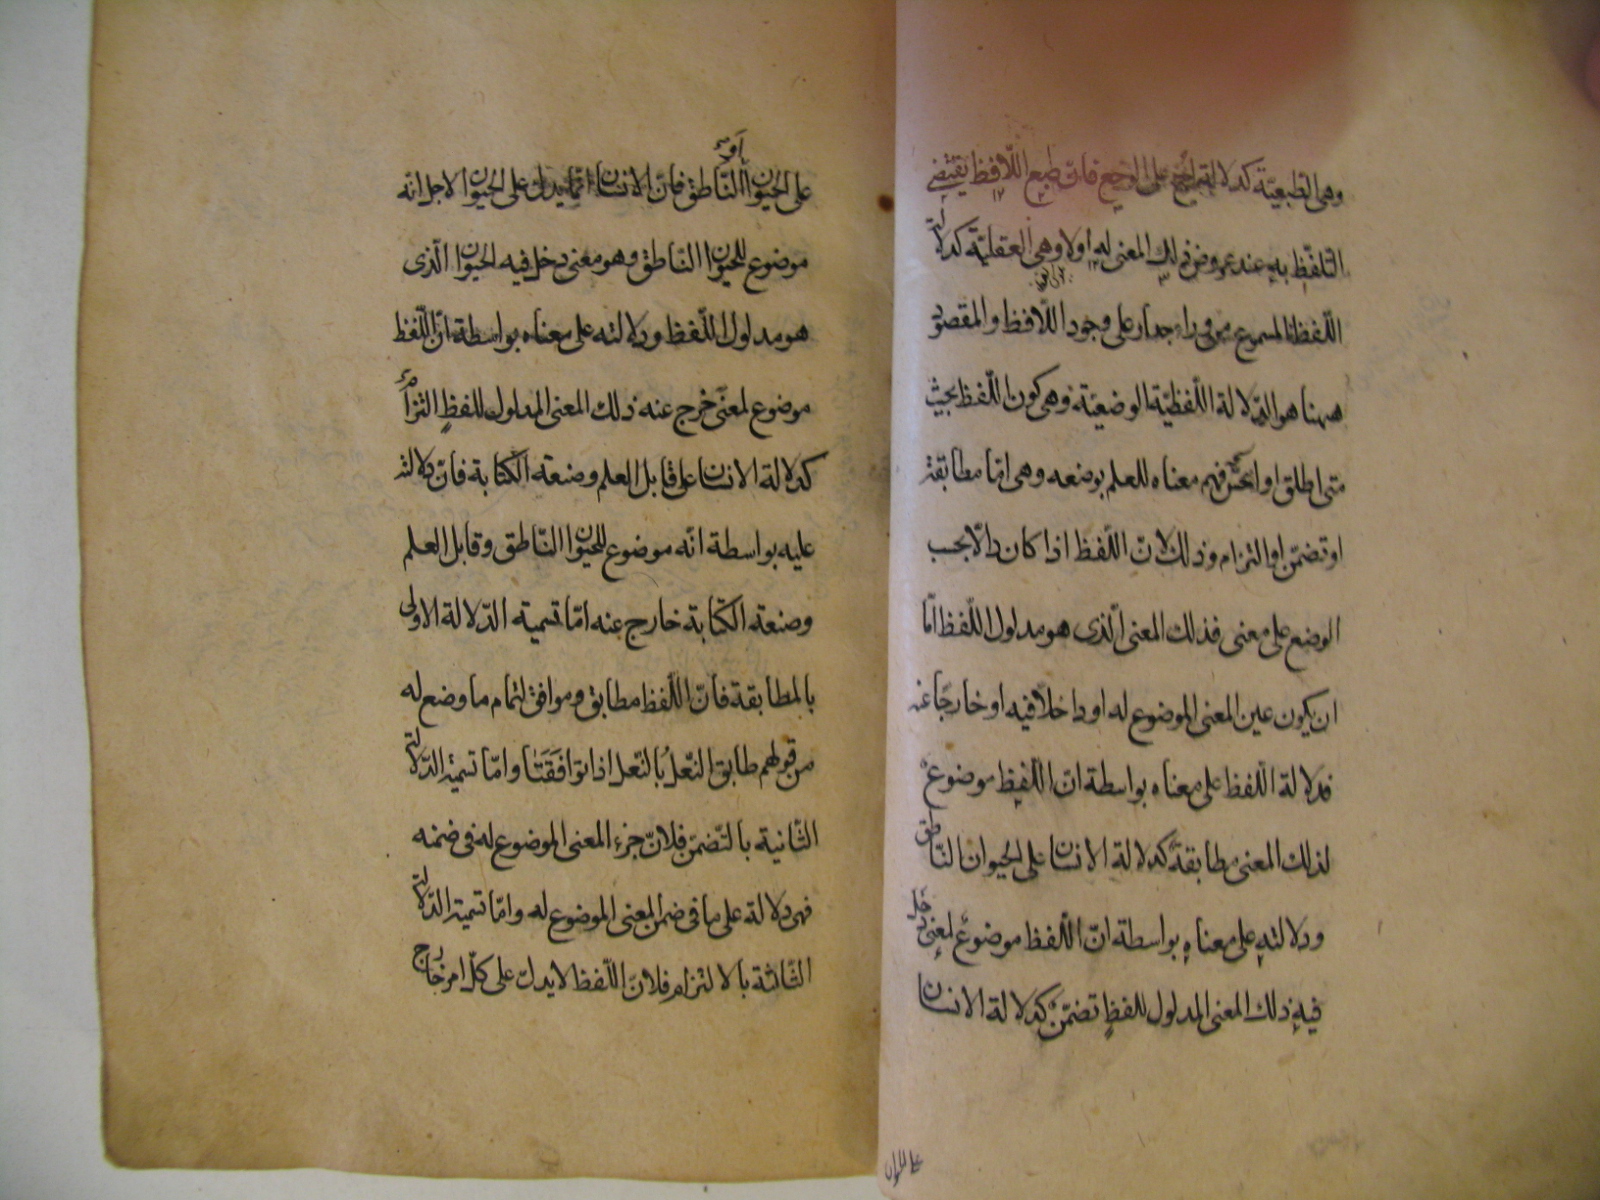 وهى الطبعيّة كدلالة اح اح على الوجع فانّ طبع اللّافظ يقتضى
التلفّظ به عند عروض ذلك المعنى له اولا وهى العقليّة كدلالة
اللّفظ المسموع من وراء جدار على وجود اللّافظ والمقصود
ههنا هو الدّلالة اللّفظيّة الوضعيّة وهى كون اللّفظ بحيث
متى اطلق او احسّ فهم معناه للعلم بوضعه وهى امّا مطابقة
او تضمّن او التزام وذلك لانّ اللّفظ اذا كان دالّا بحسب
الوضع على معنى فذلك المعنى الّذى هو مدلول اللّفظ امّا
ان يكون عين المعنى الموضوع له او داخلاً فيه او خارجًا عنه
فدلالة اللّفظ على معناه بواسطة انّ اللّفظ موضوع
لذلك المعنى مطابقة كدلالة الانسان على الحيوان النّاطق
ودلالته على معناه بواسطة انّ اللّفظ موضوع لمعنى دخل
فيه ذلك المعنى المدلول للفظ تضمّن كدلالة الانسان
على الحيوان
على الحيوان او النّاطق فانّ الانسان انّما يدل على الحيوان لاجل انّه
موضوع للحيوان النّاطق وهو معنى دخل فيه الحيوان الّذى
هو مدلول اللّفظ ودلالته على معناه بواسطة انّ اللّفظ
موضوع لمعنى خرج عنه ذلك المعنى المدلول للفظ التزام
كدلالة الانسان على قابل العلم وصنعة الكتابة فانّ دلالته
عليه بواسطة انّه موضوع للحيوان النّاطق وقابل العلم
وصنعة الكتابة خارج عنه امّا تسمية الدّلالة الاولى
بالمطابقة فانّ اللّفظ مطابق وموافق لتمام ما وضع له
من قولهم طابق النّعلُ بالنّعل اذا توافَقَتا وامّا تسمية الدّلالة
الثّانية بالتّضمّن فلانّ جزء المعنى الموضوع له فى ضمنه
فهى دلالة على ما فى ضمن المعنى الموضوع له وامّا تسمية الدّلالة
الثّالثة بالالتزام فلانّ اللّفظ لا يدلّ على كلّ امر خارج